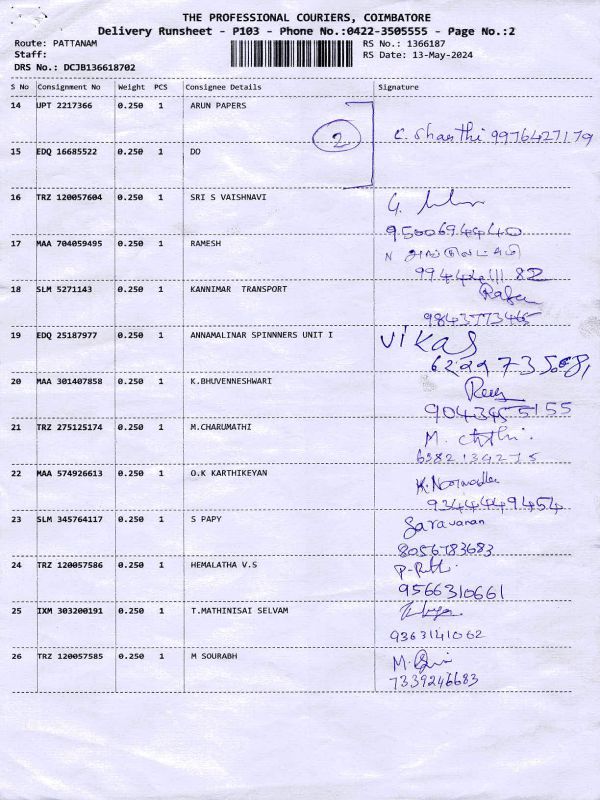 THE PROFESSIONAL COURIERS, COIMBATORE
Delivery Runsheet - P103 - Phone No.:0422-3505555 - Page No.:2
Route: PATTANAM RS No.: 1366187
Staff: RS Date: 13-May-2024
DRS No.: DCJB136618702
S No Consignment No Weight PCS Consignee Details Signature
14 UPT 2217366 0.250 1 ARUN PAPERS
2 C. Shanthi 9976427179
15 EDQ 16685522 0.250 1 DO
16 TRZ 120057604 0.250 1 SRI S VAISHNAVI
9500694440
17 MAA 704059495 0.250 1 RAMESH N
18 SLM 5271143 0.250 1 KANNIMAR TRANSPORT
9843773465
19 EDQ 25187977 0.250 1 ANNAMALINAR SPINNNERS UNIT I Vikas
20 MAA 301407858 0.250 1 K.BHUVENNESHWARI
21 TRZ 275125174 0.250 1 M.CHARUMATHI M.
6382134275
22 MAA 574926613 0.250 1 O.K KARTHIKEYAN
9344449454
23 SLM 345764117 0.250 1 S PAPY Saravanan
8056783683
24 TRZ 120057586 0.250 1 HEMALATHA V.S
9566310661
25 IXM 303200191 0.250 1 T.MATHINISAI SELVAM
9363141062
26 TRZ 120057585 0.250 1 M SOURABH M.
7339246683